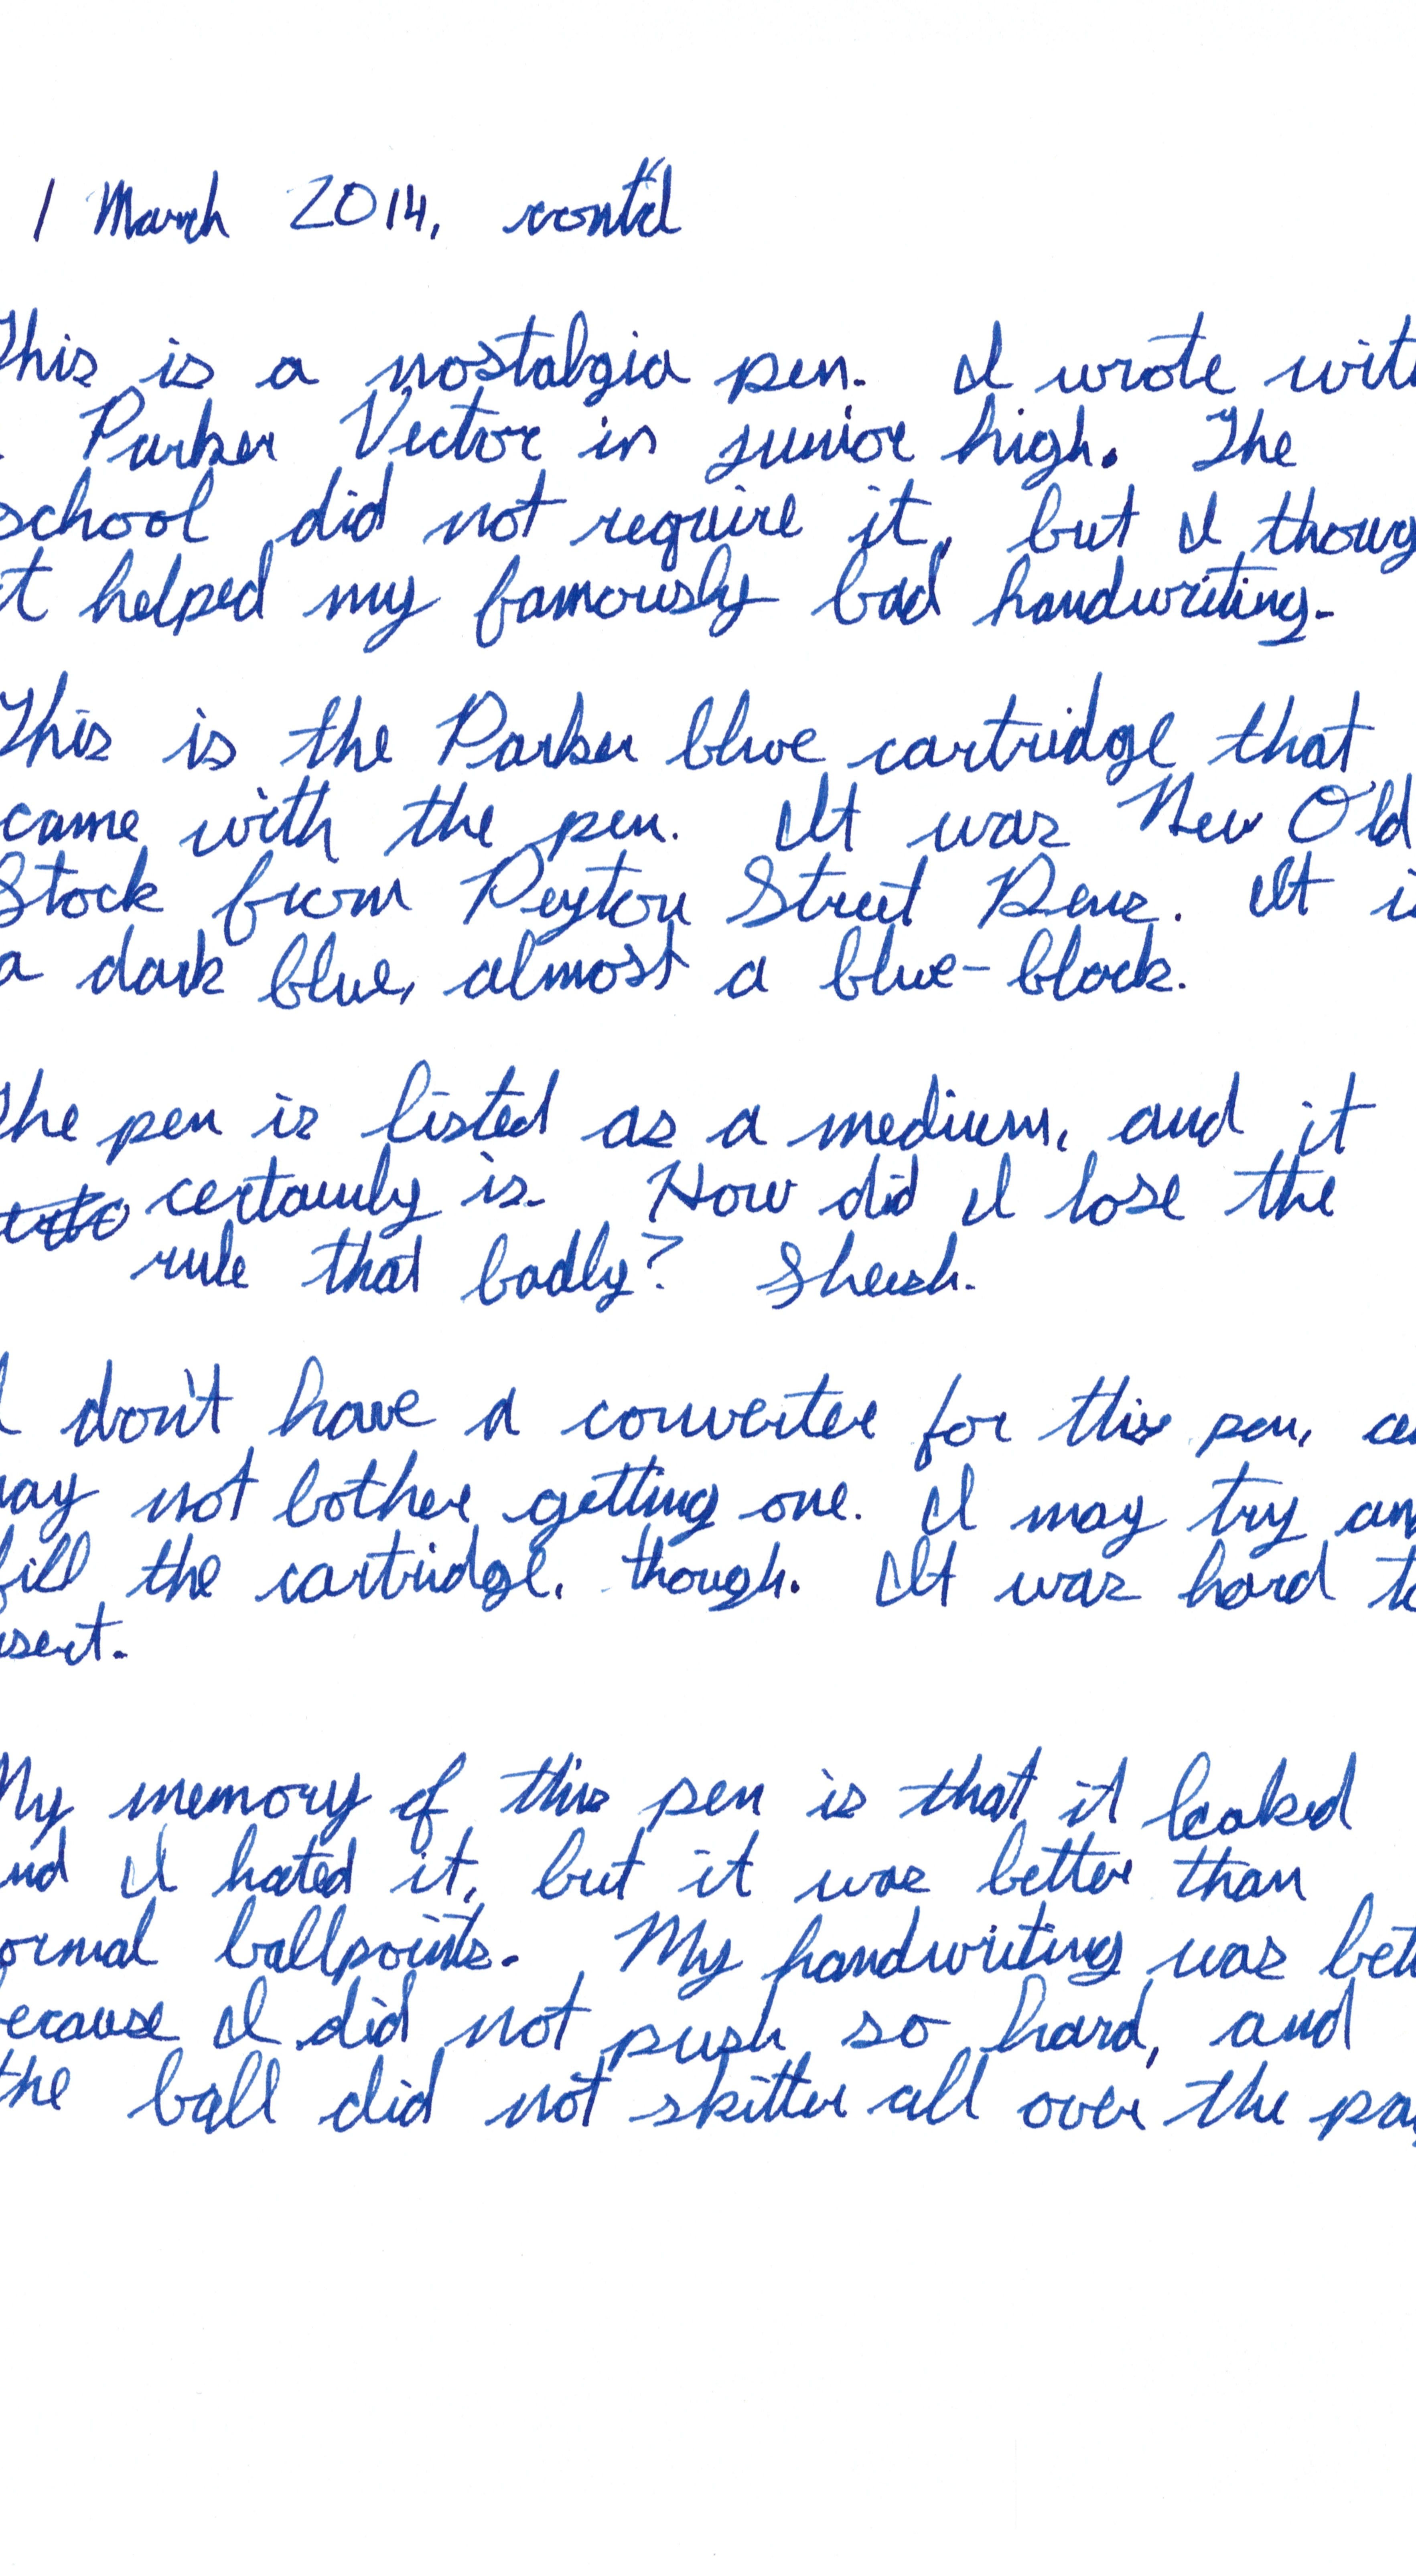 1 March 2014, cont'd
This is a nostalgia pen. I wrote wit
Parker Vector in junior high. The
school did not require it, but I thoug
t helped my famously bad handwriting.
This is the Parker blue cartridge that
came with the pen. It was New Old
Stock from Peyton Street Pens. It i
a dark blue, almost a blue-black.
The pen is listed as a medium, and it
certainly is. How did I lose the
rule that badly? Sheesh.
I don't have a converter for this pen, a
ay not bother getting one. I may try an
fill the cartridge, though. It was hard t
sert.
My memory of this pen is that it leaked
nd I hated it, but it was better than
ormal ballpoints. My handwriting was bett
ecause I did not push so hard, and
the ball did not skitter all over the pa